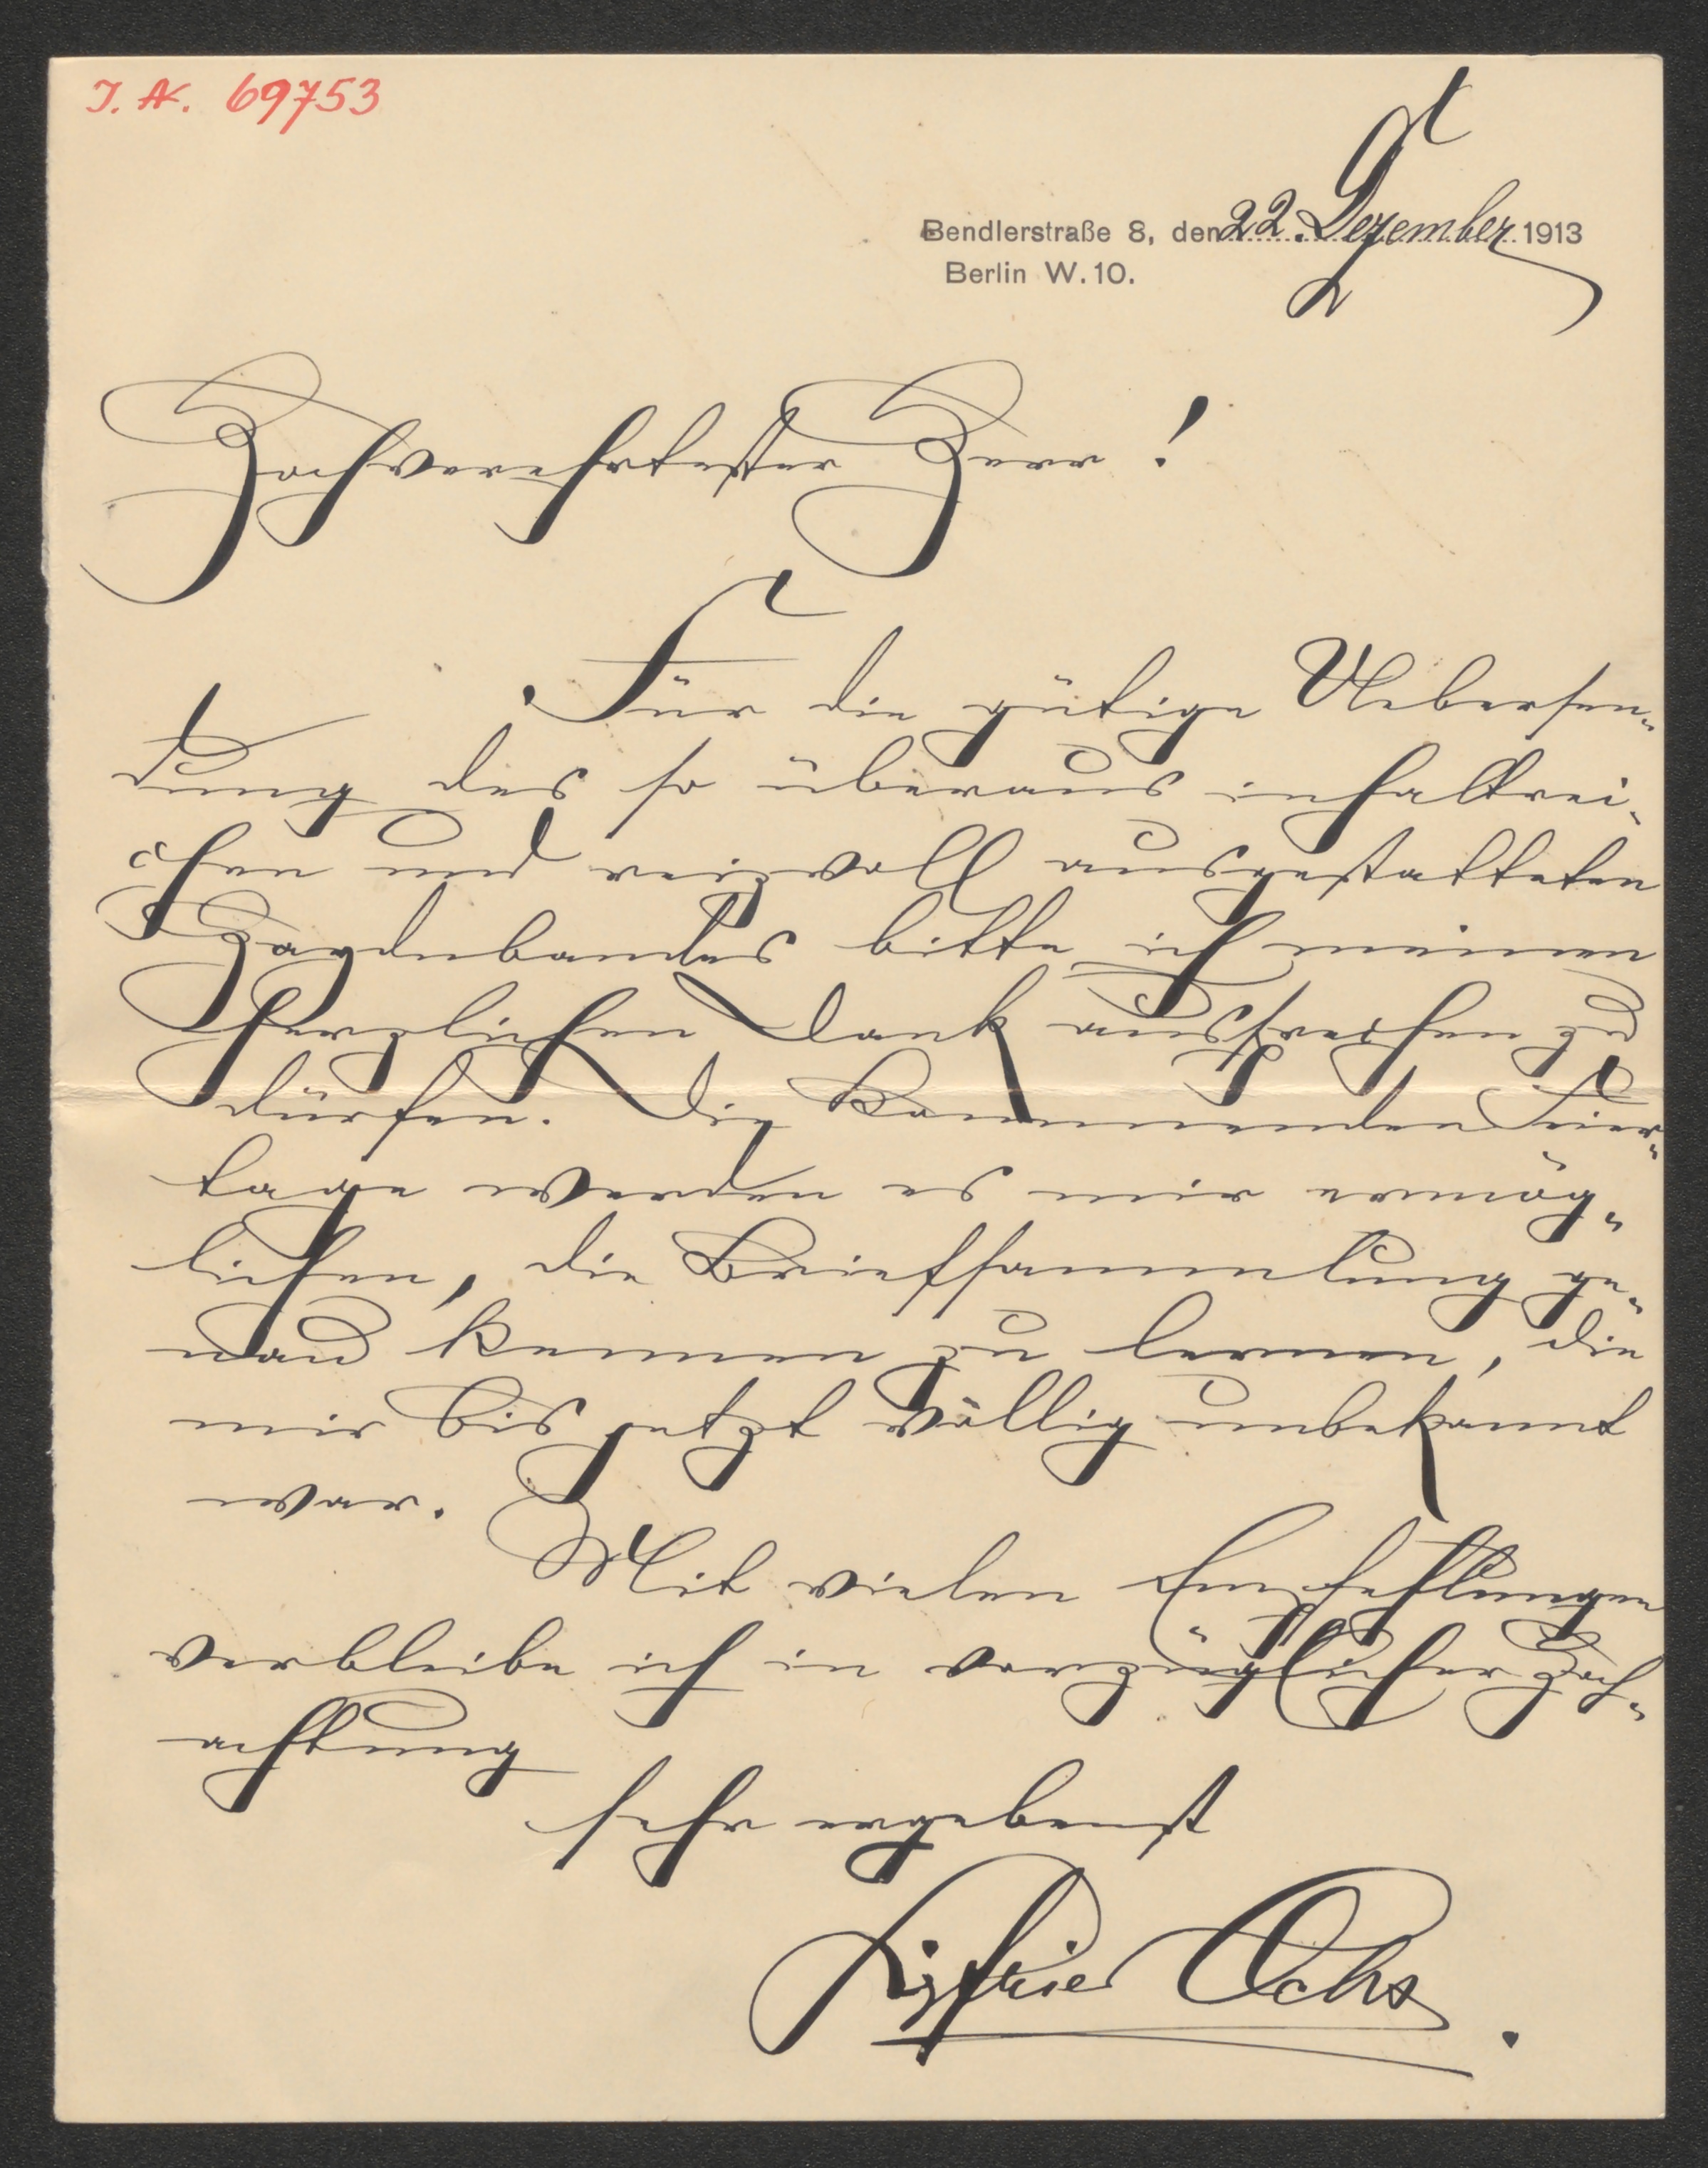 I. N. 69753
Bendlerstraße 8, den 22. Dezember 1913
Berlin W. 10.
Hochverehrtester Herr!
Für die gütige Uebersen-
dung des so überaus inhaltrei-
chen und reizvoll ausgestatteten
Haydnbandes bitte ich meinen
herzlichen Dank aussprechen zu
dürfen. Die kommenden Feier-
tage werden es mir ermög-
lichen, die Briefsammlung ge-
nau kennen zu lernen, die
mir bis jetzt völlig unbekannt
war.
Mit vielen Empfehlungen
verbleibe ich in vorzüglicher Hoch-
achtung
sehr ergebenst
Sigfried Ochs.